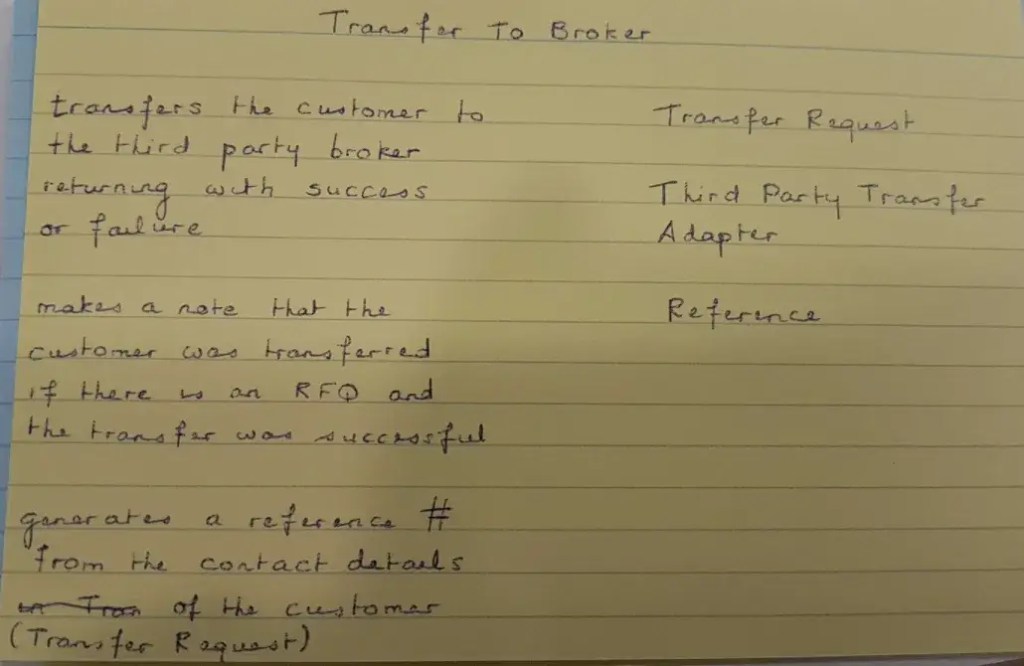 Transfer To Broker
transfers the customer to
the third party broker
returning with success
or failure
makes a note that the
customer was transferred
if there is an RFQ and
the transfer was successful
generates a reference #
from the contact details
of the customer
(Transfer Request)
Transfer Request
Third Party Transfer
Adapter
Reference